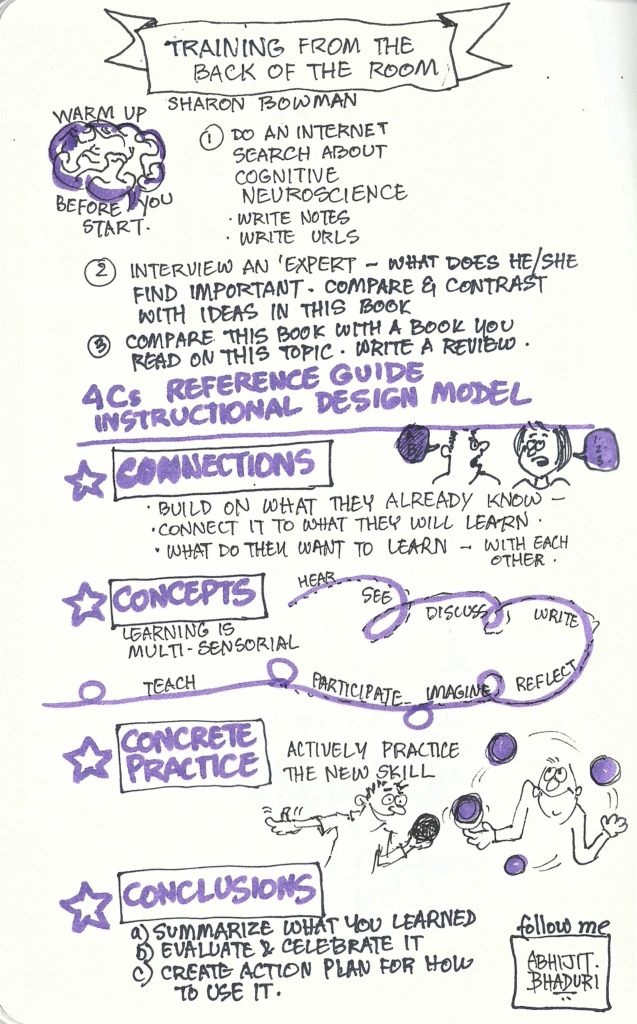 TRAINING FROM THE
BACK OF THE ROOM
SHARON BOWMAN
WARM UP
BEFORE YOU
START.
1 DO AN INTERNET
SEARCH ABOUT
COGNITIVE
NEUROSCIENCE
· WRITE NOTES
· WRITE URLS
2 INTERVIEW AN 'EXPERT – WHAT DOES HE/SHE
FIND IMPORTANT. COMPARE & CONTRAST
WITH IDEAS IN THIS BOOK
3 COMPARE THIS BOOK WITH A BOOK YOU
READ ON THIS TOPIC. WRITE A REVIEW.
4Cs REFERENCE GUIDE
INSTRUCTIONAL DESIGN MODEL
CONNECTIONS
· BUILD ON WHAT THEY ALREADY KNOW –
· CONNECT IT TO WHAT THEY WILL LEARN.
· WHAT DO THEY WANT TO LEARN – WITH EACH
OTHER.
CONCEPTS
LEARNING IS
MULTI-SENSORIAL
HEAR
SEE
DISCUSS
WRITE
REFLECT
IMAGINE
PARTICIPATE
TEACH
CONCRETE
PRACTICE
ACTIVELY PRACTICE
THE NEW SKILL
CONCLUSIONS
a) SUMMARIZE WHAT YOU LEARNED
b) EVALUATE & CELEBRATE IT
c) CREATE ACTION PLAN FOR HOW
TO USE IT.
follow me
ABHIJIT.
BHADURI